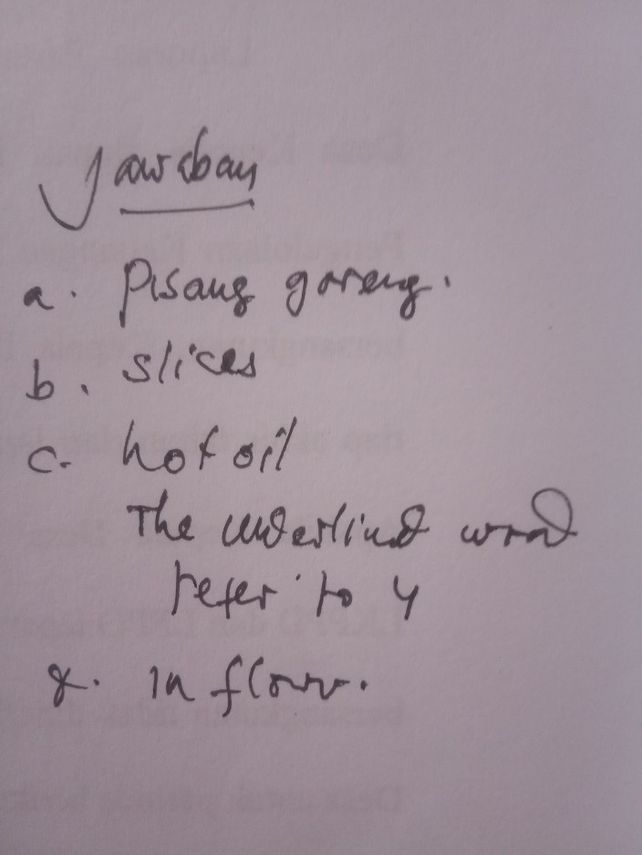 Jawaban
a. Pisang goreng.
b. slices
c. hot oil
The underlined word
refer to 4
in flour.